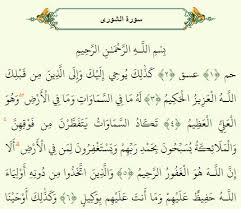 سورة الشورى
بِسْمِ اللَّـهِ الرَّحْمَـٰنِ الرَّحِيمِ
حم ﴿١﴾ عسق ﴿٢﴾ كَذَٰلِكَ يُوحِي إِلَيْكَ وَإِلَى الَّذِينَ مِن قَبْلِكَ
اللَّـهُ الْعَزِيزُ الْحَكِيمُ ﴿٣﴾ لَهُ مَا فِي السَّمَاوَاتِ وَمَا فِي الْأَرْضِ ۖ وَهُوَ
الْعَلِيُّ الْعَظِيمُ ﴿٤﴾ تَكَادُ السَّمَاوَاتُ يَتَفَطَّرْنَ مِن فَوْقِهِنَّ ۚ
وَالْمَلَائِكَةُ يُسَبِّحُونَ بِحَمْدِ رَبِّهِمْ وَيَسْتَغْفِرُونَ لِمَن فِي الْأَرْضِ ۗ أَلَا
إِنَّ اللَّـهَ هُوَ الْغَفُورُ الرَّحِيمُ ﴿٥﴾ وَالَّذِينَ اتَّخَذُوا مِن دُونِهِ أَوْلِيَاءَ
اللَّـهُ حَفِيظٌ عَلَيْهِمْ وَمَا أَنتَ عَلَيْهِم بِوَكِيلٍ ﴿٦﴾ وَكَذَٰلِكَ أَوْحَيْنَا